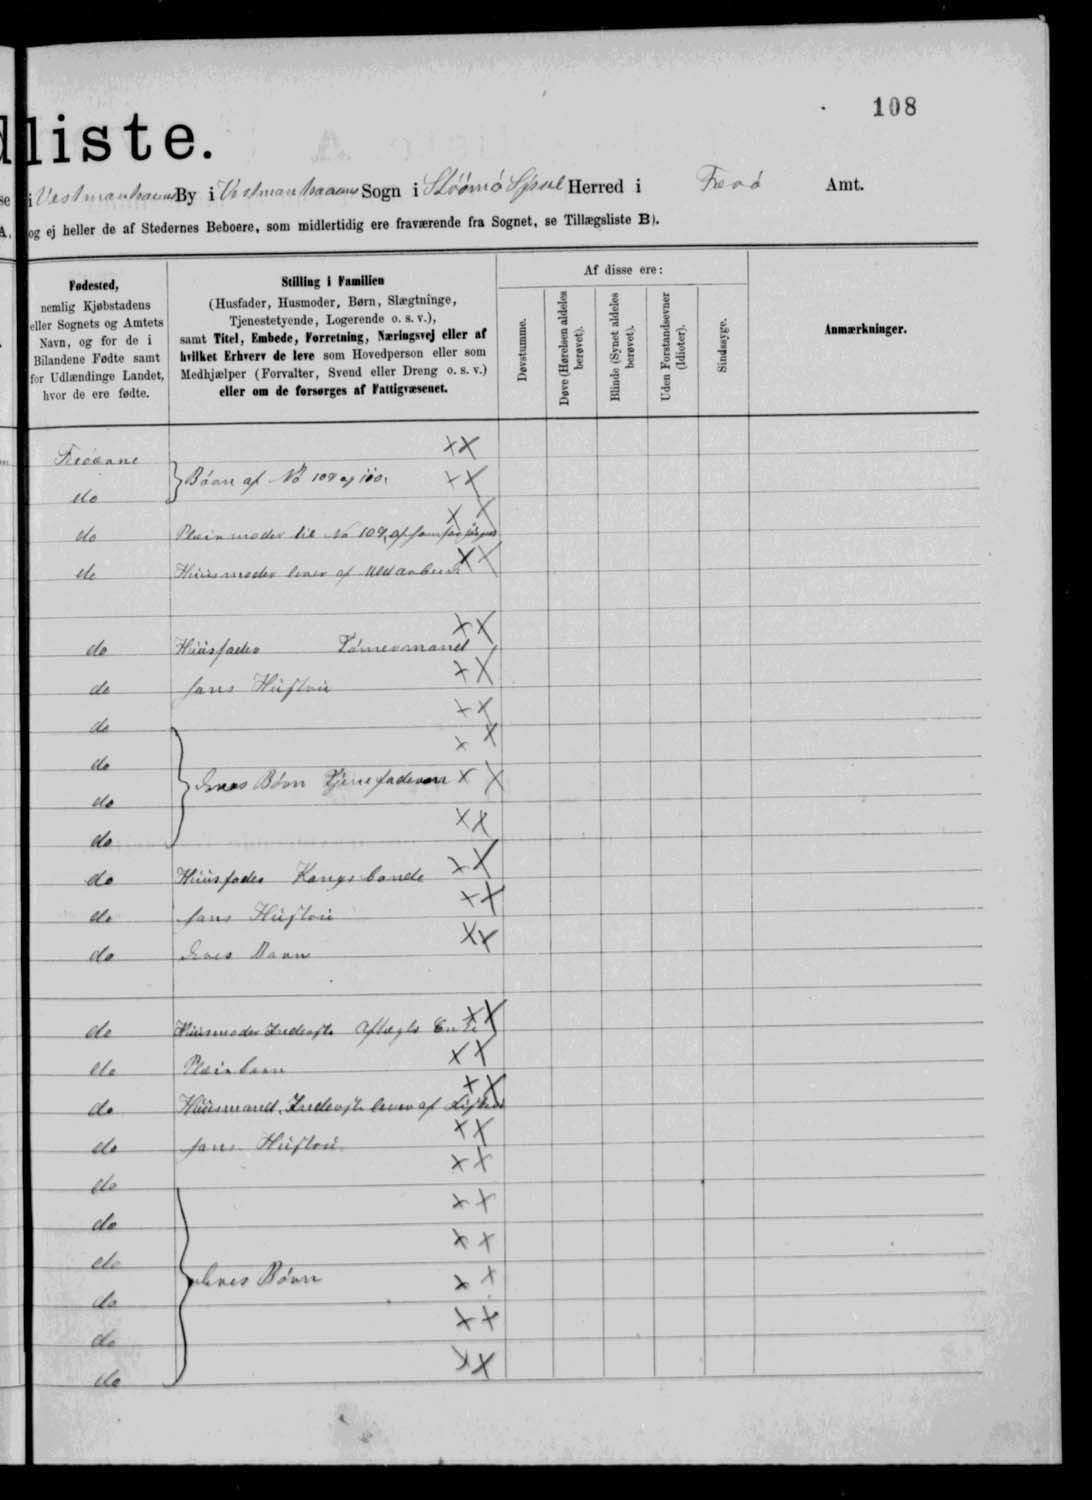 108
liste.
i Vestmanhavns By i Vestmanhavns Sogn i Strömö Sÿssel Herred i Færö Amt.
og ej heller de af Stedernes Beboere, som midlertidig ere fraværende fra Sognet, se Tillægsliste B).
Fødested,
nemlig Kjøbstadens
eller Sognets og Amtets
Navn, og for de i
Bilandene Fødte samt
for Udlændinge Landet,
hvor de ere fødte.
Stilling i Familien
(Husfader, Husmoder, Børn, Slægtninge,
Tjenestetyende, Logerende o. s. v.),
samt Titel, Embede, Forretning, Næringsvej eller af
hvilket Erhverv de leve som Hovedperson eller som
Medhjælper (Forvalter, Svend eller Dreng o. s. v.)
eller om de forsørges af Fattigvæsenet.
Af disse ere:
Døvstumme.
Døve (Hørelsen aldeles
berøvet).
Blinde (Synet aldeles
berøvet).
Uden Forstandsevner
(Idioter).
Sindssyge.
Anmærkninger.
XX
do Börn af No 109 og 110. XX
do Pleiemoder til No 109, af XX
do Huusmoder lever af Uldarbeid XX
do Huusfader Tömermand XX
do hans Hustru XX
do XX
do X X
do deres Börn Tjene faderen X X
do XX
do Huusfader Kongsbonde XX
do hans Hustru XX
do deres Barn XX
do Huusmoder Inderste Aftægts Enke XX
do Pleiebarn XX
do Huusmand, Inderste lever af XX
do hans Hustru XX
do XX
do XX
do XX
do deres Börn X X
do XX
do XX